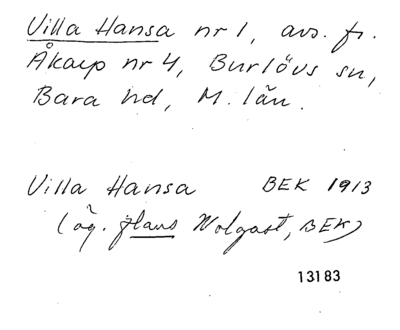 Villa Hansa nr 1, avs. fr.
Åkarp nr 4, Burlövs sn,
Bara hd, M. län.
Villa Hansa BEK 1913
(äg. Hans Wolgast, BEK)
13183